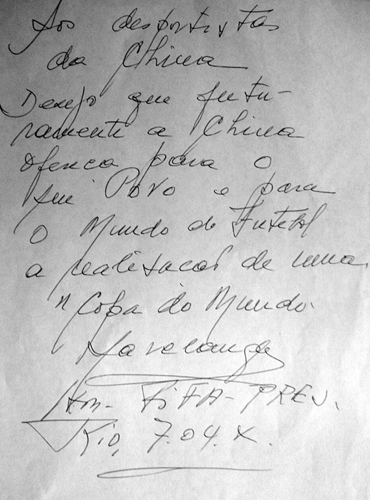 Aos desportistas
da China
Desejo que futu-
ramente a China
ofereca para o
seu Povo e para
o Mundo do Futebol
a realisacao de uma
"Copa do Mundo.
Havelange
Hon- FiFA- PRES.
Rio, 7.04.X.